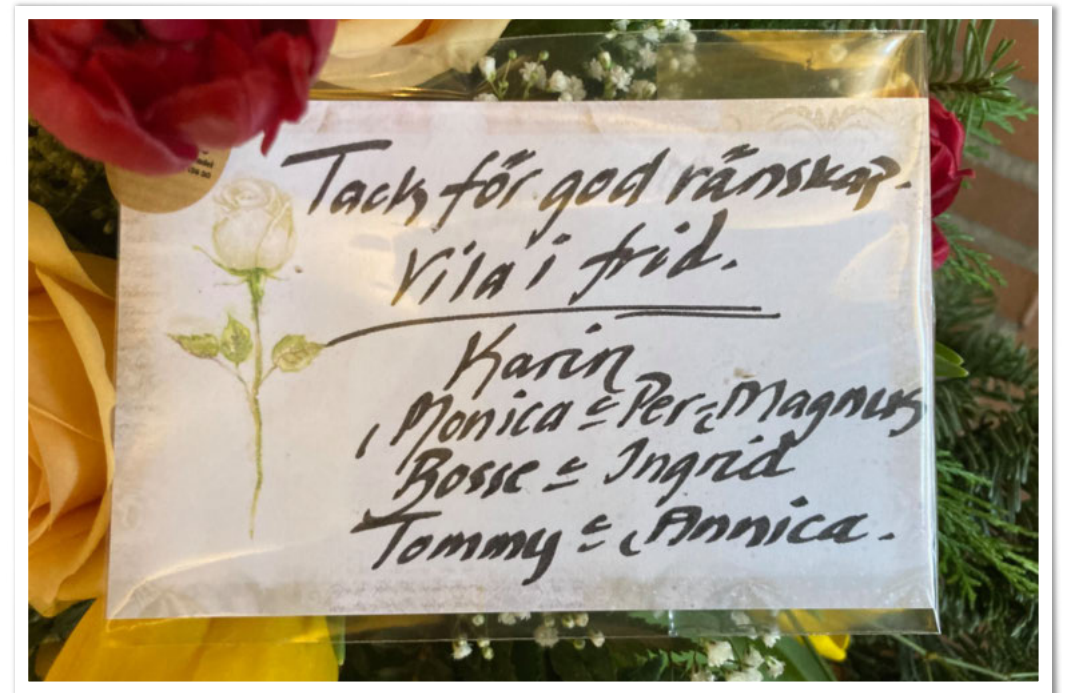 Tack för god vänskap.
Vila i frid.
Karin
Monica & Per & Magnus
Bosse & Ingrid
Tommy & Annica.